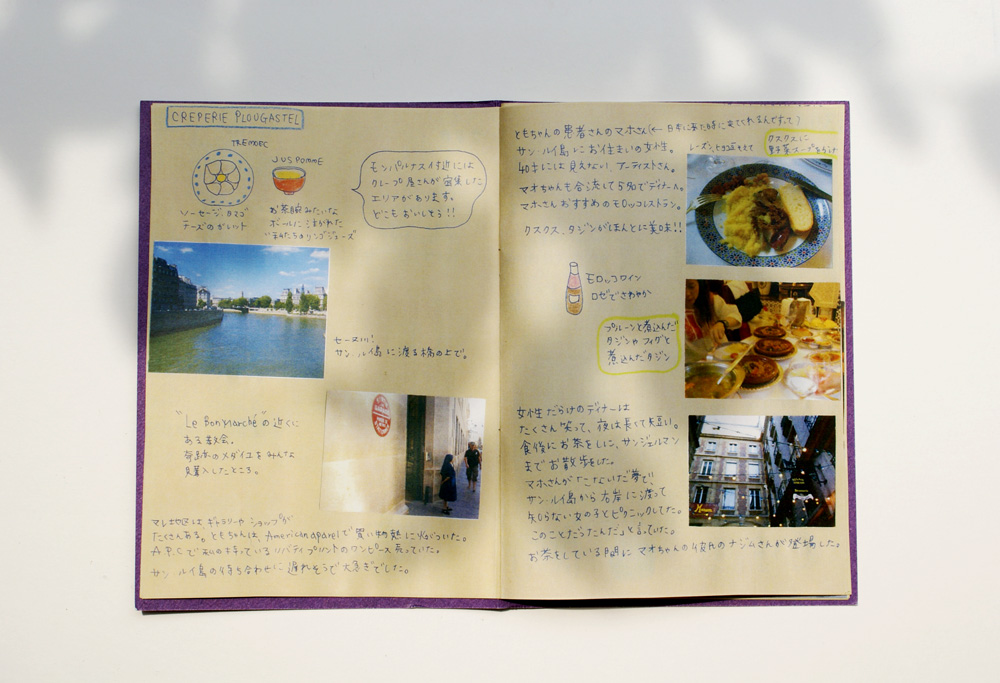 CREPERIE PLOUGASTEL
TREMORC
JUS POMME
ソーセージ、タマゴ
チーズのガレット
お茶腕みたいな
ボールに注がれた
リンゴジュース
モンパルナス付近には
クレープ屋さんが密集した
エリアがあります。
どこもおいしそう!!
セーヌ川!
サン・ルイ島に渡る橋の上で。
"Le Bon Marché"の近くに
ある教会。
奇跡のメダイユをみんな
購入したところ。
マレ地区はギャラリーや ショップが
たくさんある。ともちゃんは、American apparelで買い物熱に火がついた。
A.P.Cで私の持っているリバティプリントのワンピース売っていた。
サン・ルイ島の待ち合わせに遅れそうで大急ぎでした。
ともちゃんの患者さんのマホさん(← 日本に来た時に来てくれるんですって)
サン・ルイ島にお住まいの女性。
40才にしか見えない、アーティストさん。
マオちゃんも合流して5名でディナーへ。
マホさんおすすめのモロッコレストラン。
クスクス、タジンがほんとに美味!!
クスクスに
野菜スープをかけ
モロッコワイン
ロゼでさわやか
プルーンと煮込んだ
タジンや フィグと
煮込んだタジン
女性だらけのディナーは
たくさん笑って、夜は長くて短い。
食後にお茶をしに、サンジェルマン
までお散歩をした。
マホさんが「こないだ夢で、
サン・ルイ島から右岸に渡って
知らない女の子とピクニックしてた。
このことだったんだ」と言っていた。
お茶をしている間にマオちゃんの彼氏のナジムさんが登場した。